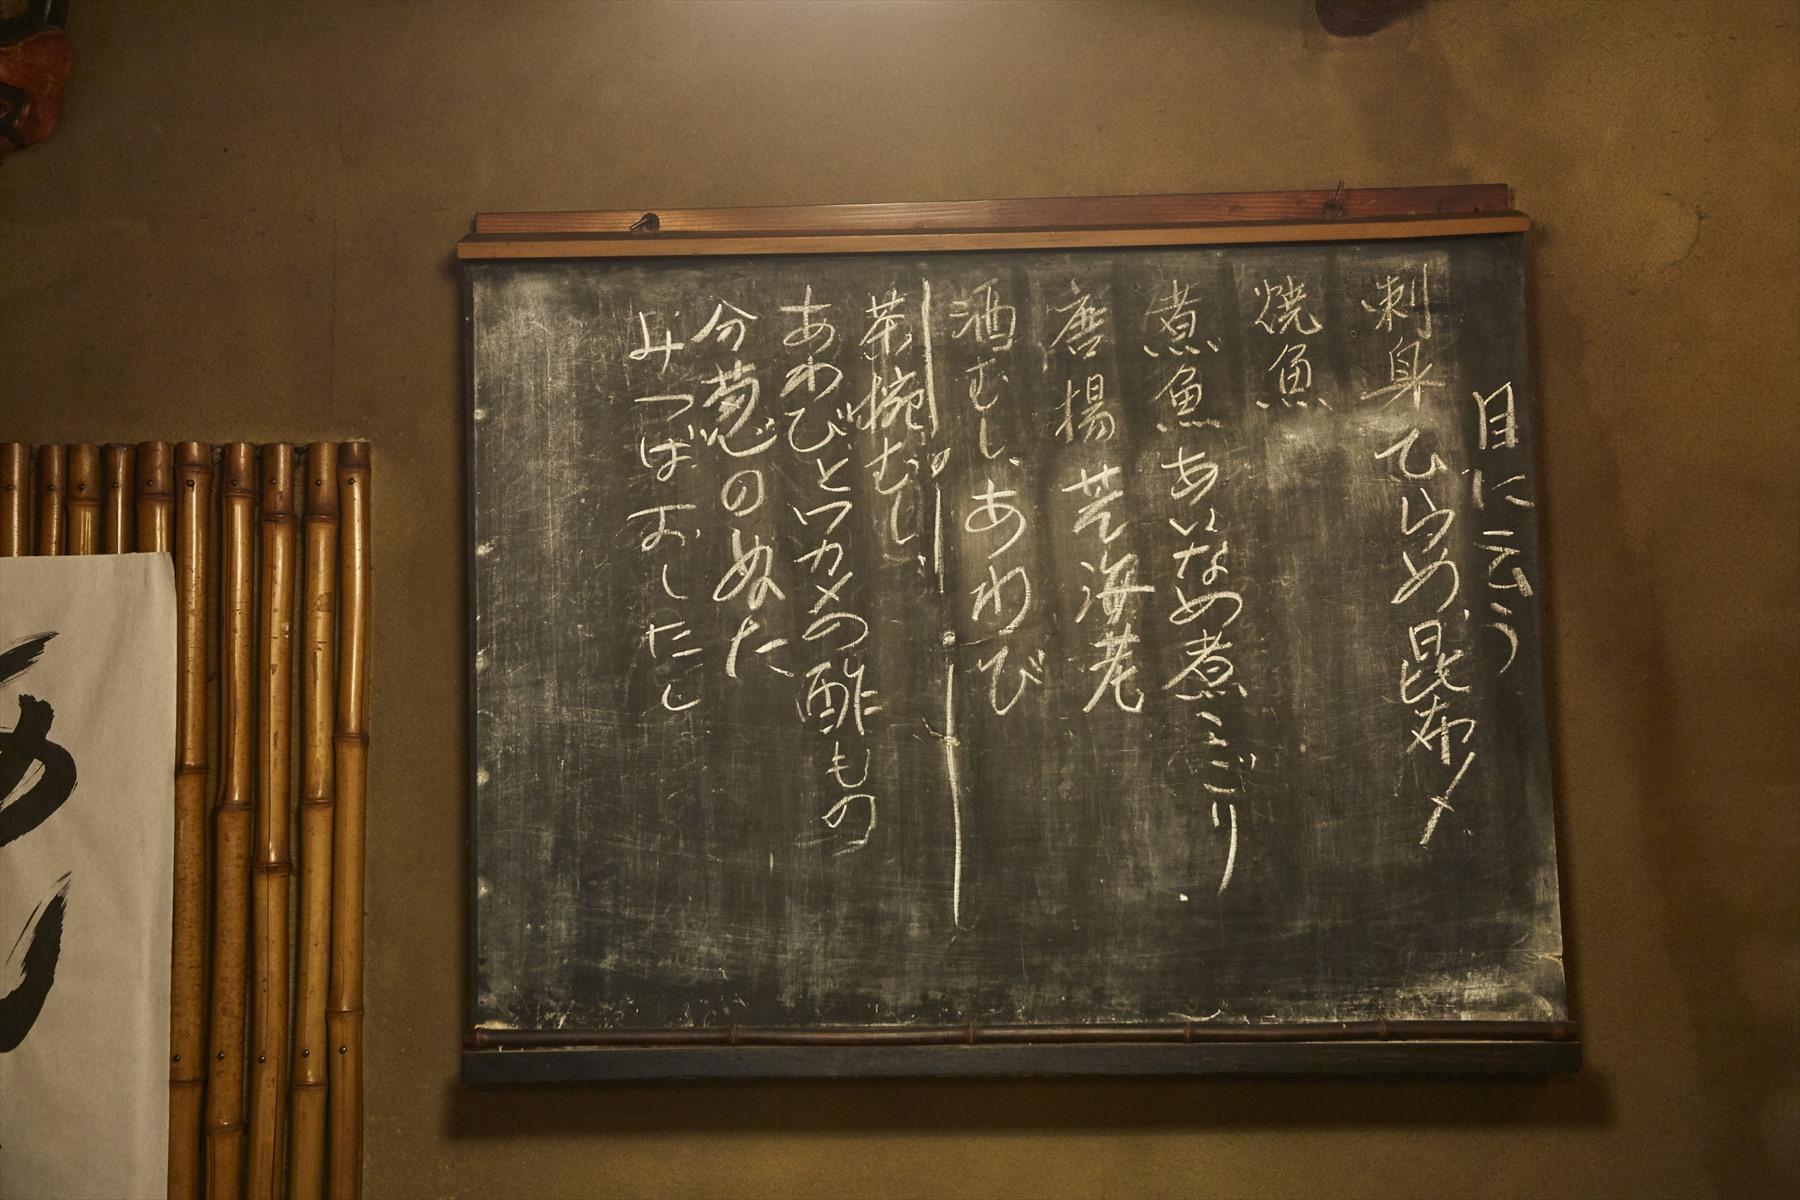 目に云う
刺身 ひらめ、昆布〆
焼魚
煮魚 あいなめ煮こごり
唐揚 芝海老
酒むし、あわび
茶椀むし
あわびとワカメの酢もの
分葱のぬた
みつばおしたし